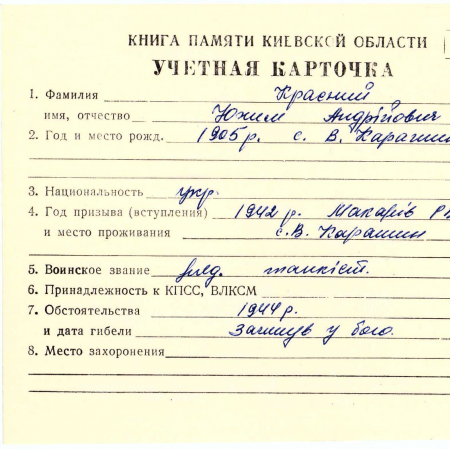 КНИГА ПАМЯТИ КИЕВСКОЙ ОБЛАСТИ
УЧЕТНАЯ КАРТОЧКА
1. Фамилия Красний
имя, отчество Юхим Андрійович
2. Год и место рожд. 1905 р. с. В. Карашин
3. Национальность укр.
4. Год призыва (вступления) 1942 р. Макарів
и место проживания с. В. Карашин
5. Воинское звание танкіст.
6. Принадлежность к КПСС, ВЛКСМ
7. Обстоятельства 1944 р.
и дата гибели Загинув у бою.
8. Место захоронения